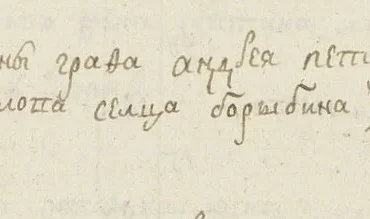 ны граѳа андрея пет
лопа селца борыбина